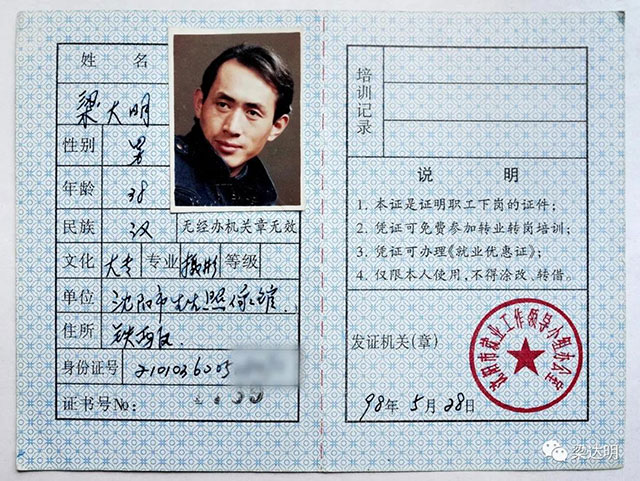 姓 名
梁大明
性别 男
年龄 38
民族 汉
无经办机关章无效
文化 大专 专业 摄影 等级
单位 沈阳市生生照像馆.
住所 铁西区
身份证号 2101036005
证书号No:
培训记录
说 明
1. 本证是证明职工下岗的证件;
2. 凭证可免费参加转业转岗培训;
3. 凭证可办理《就业优惠证》;
4. 仅限本人使用,不得涂改、转借。
发证机关(章)
沈阳市就业工作领导小组办公室
98年 5月 28日
梁达明